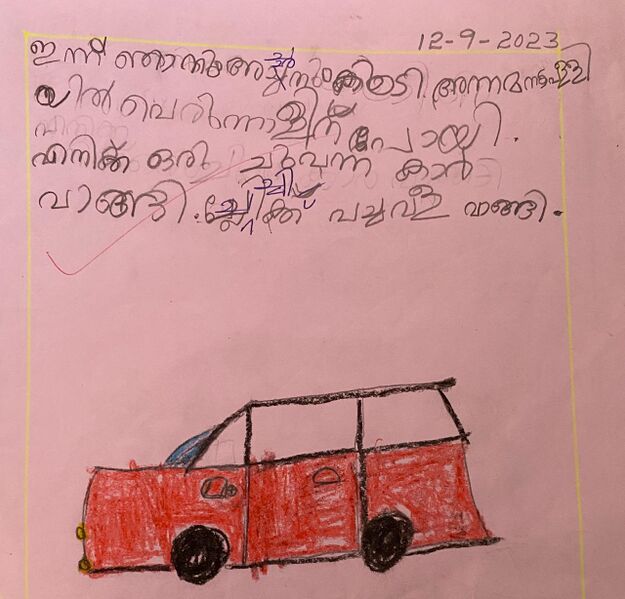 12-9-2023
ഇന്ന് ഞാനും അച്ഛനും കൂടി അന്നമനടപള്ളി
യിൽ പെരുന്നാളിന് പോയി.
എനിക്ക് ഒരു ചുവന്ന കാർ
വാങ്ങി. ചേച്ചിക്ക് പച്ചവള വാങ്ങി.